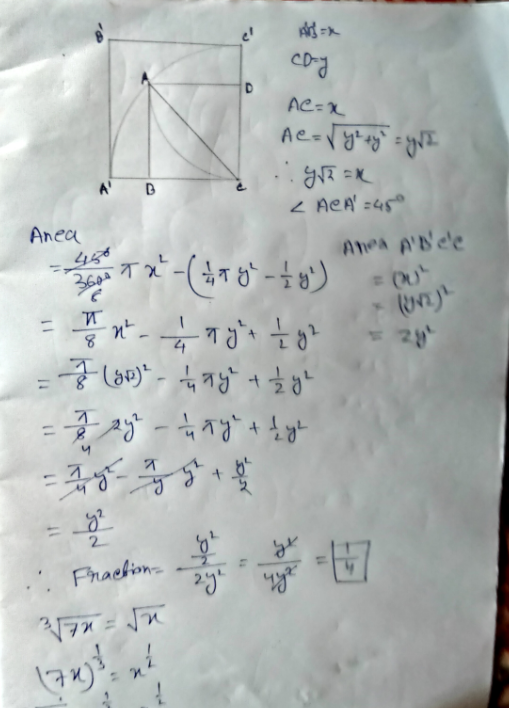 B' C'
A D
A' B C
A'B' = x
CD = y
AC = x
AC = √(y² + y²) = y√2
∴ y√2 = x
∠ACA' = 45°
Area
= 45°/360° π x² - (1/4 π y² - 1/2 y²)
8
= π/8 x² - 1/4 π y² + 1/2 y²
= π/8 (y√2)² - 1/4 π y² + 1/2 y²
= π/8 2y² - 1/4 π y² + 1/2 y²
4
= π/4 y² - π/4 y² + y²/2
= y²/2
Area A'B'C'C
= (x)²
= (y√2)²
= 2y²
∴ Fraction = (y²/2)/2y² = y²/4y² = 1/4
³√7x = √x
(7x)^1/3 = x^1/2